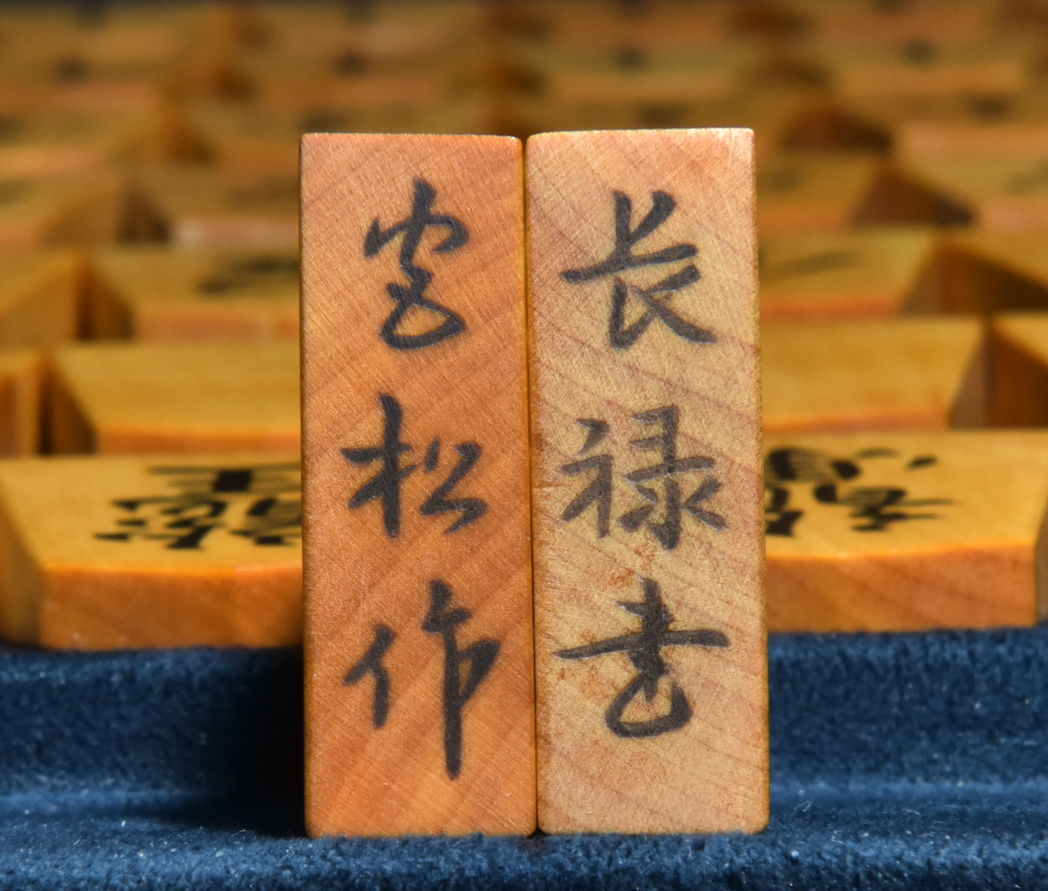 長禄書
宮松作